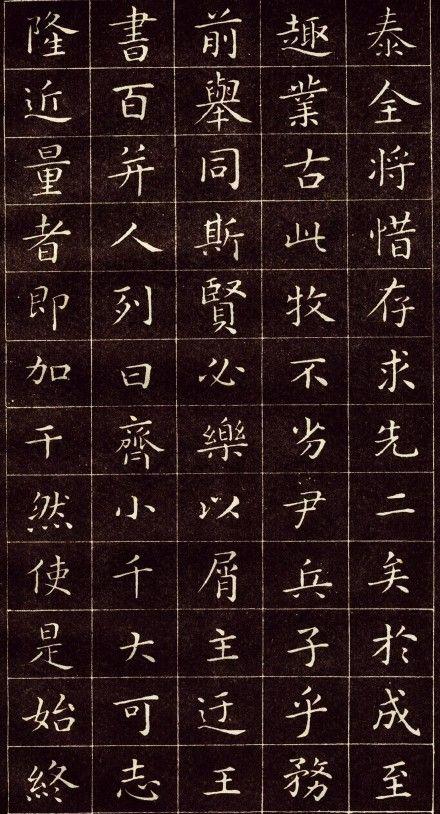 泰全將惜存求先二矣於成至
趣業古此牧不劣尹兵子乎務
前舉同斯賢必樂以屑主迂王
書百并人列曰齊小千大可志
隆近量者即加于然使是始終